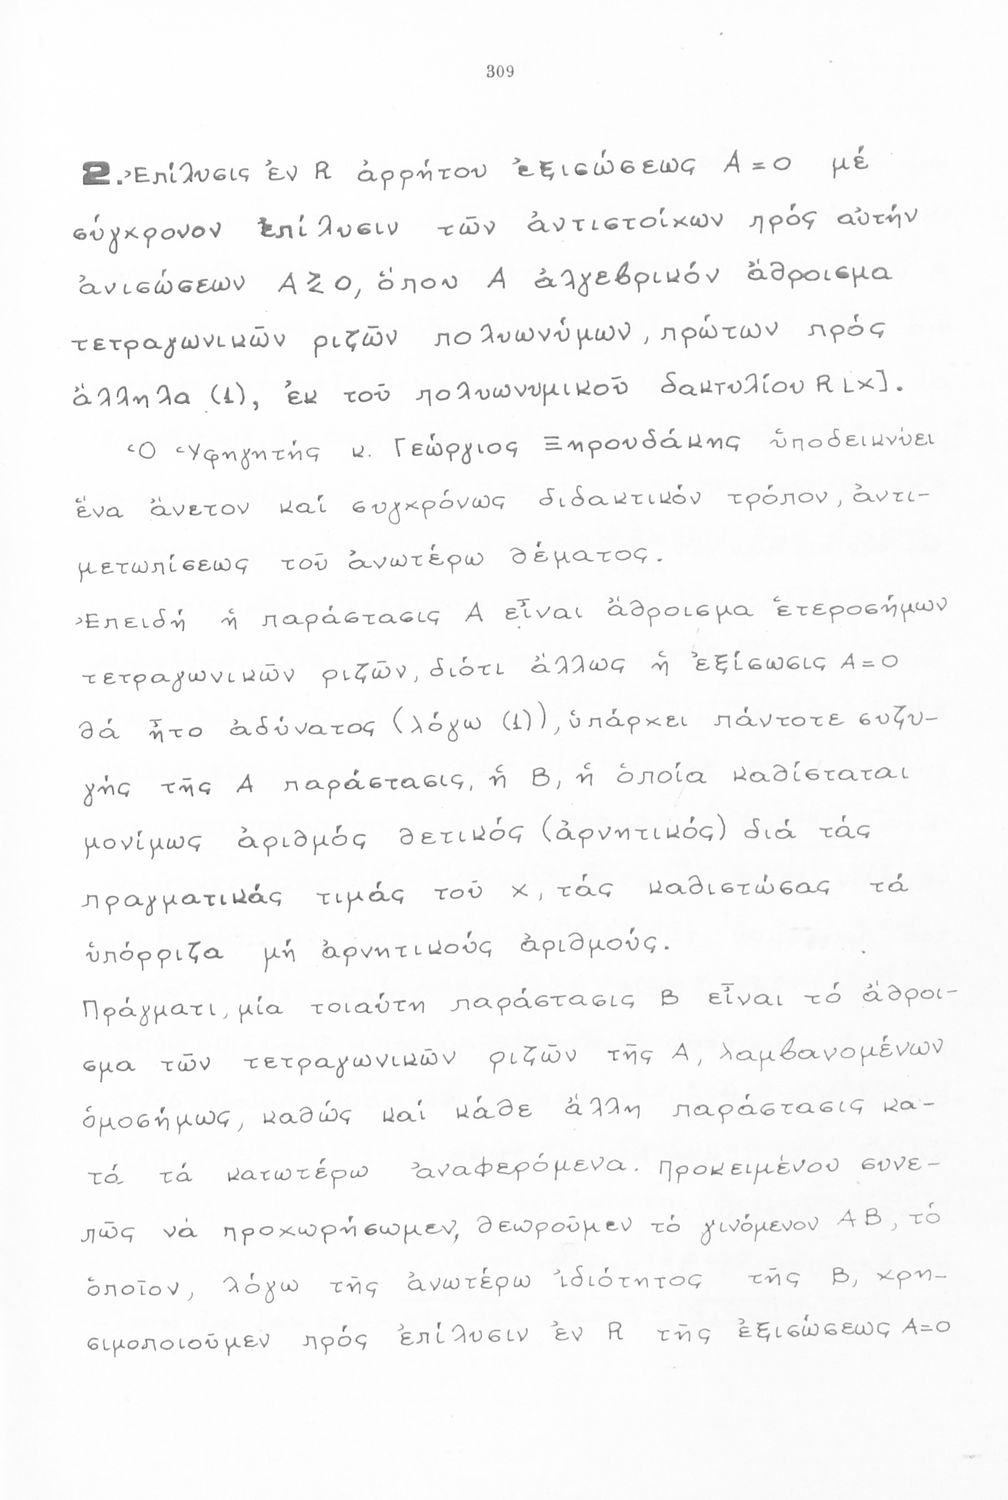 309
2. Ἐπίλυσις ἐν R ἀρρήτου ἐξισώσεως A=0 μέ
σύγχρονον ἐπίλυσιν τῶν ἀντιστοίχων πρός αὐτήν
ἀνισώσεων A≷0, ὅπου A ἀλγεβρικόν ἄθροισμα
τετραγωνικῶν ριζῶν πολυωνύμων, πρώτων πρός
ἄλληλα (1), ἐκ τοῦ πολυωνυμικοῦ δακτυλίου R[x].
Ὁ Ὑφηγητής κ. Γεώργιος Ξηρουδάκης ὑποδεικνύει
ἕνα ἄνετον καί συγχρόνως διδακτικόν τρόπον, ἀντι-
μετωπίσεως τοῦ ἀνωτέρω θέματος.
Ἐπειδή ἡ παράστασις A εἶναι ἄθροισμα ἑτεροσήμων
τετραγωνικῶν ριζῶν, διότι ἄλλως ἡ ἐξίσωσις A=0
θά ἦτο ἀδύνατος (λόγω (1)), ὑπάρχει πάντοτε συζυ-
γής τῆς A παράστασις, ἡ B, ἡ ὁποία καθίσταται
μονίμως ἀριθμός θετικός (ἀρνητικός) διά τάς
πραγματικάς τιμάς τοῦ x, τάς καθιστώσας τά
ὑπόρριζα μή ἀρνητικούς ἀριθμούς.
Πράγματι, μία τοιαύτη παράστασις B εἶναι τό ἄθροι-
σμα τῶν τετραγωνικῶν ριζῶν τῆς A, λαμβανομένων
ὁμοσήμως, καθώς καί κάθε ἄλλη παράστασις κα-
τά τά κατωτέρω ἀναφερόμενα. Προκειμένου συνε-
πῶς νά προχωρήσωμεν, θεωροῦμεν τό γινόμενον AB, τό
ὁποῖον, λόγω τῆς ἀνωτέρω ἰδιότητος τῆς B, χρη-
σιμοποιοῦμεν πρός ἐπίλυσιν ἐν R τῆς ἐξισώσεως A=0